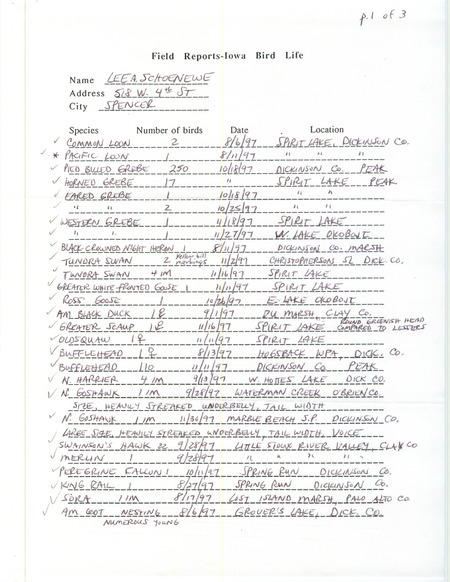 p. 1 of 3
Field Reports-Iowa Bird Life
Name LEE A. SCHOENEWE
Address 518 W. 4th ST
City SPENCER
Species Number of birds Date Location
✓ COMMON LOON 2 8/6/97 SPIRIT LAKE, DICKINSON CO.
✓ * PACIFIC LOON 1 8/11/97 " " " "
✓ PIED BILLED GREBE 250 10/18/97 DICKINSON CO. PEAK
✓ HORNED GREBE 17 " SPIRIT LAKE PEAK
✓ EARED GREBE 1 10/18/97 " "
" " 2 10/25/97 " "
✓ WESTERN GREBE 1 11/18/97 SPIRIT LAKE
" " 1 11/27/97 W. LAKE OKOBOJI
BLACK CROWNED NIGHT HERON 1 8/11/97 DICKINSON CO. MARSH
✓ TUNDRA SWAN 2 yellow bill markings 11/2/97 CHRISTOPHERSON SL DICK CO.
✓ TUNDRA SWAN 4 IM 11/16/97 SPIRIT LAKE
✓ GREATER WHITE-FRONTED GOOSE 1 11/11/97 SPIRIT LAKE
✓ ROSS' GOOSE 1 10/26/97 E. LAKE OKOBOJI
✓ AM BLACK DUCK 1♀ 9/1/97 DU MARSH, CLAY CO.
✓ GREATER SCAUP 1♀ 11/16/97 SPIRIT LAKE ROUND GREENISH HEAD COMPARED TO LESSERS
✓ OLDSQUAW 1♀ 11/11/97 SPIRIT LAKE
✓ BUFFLEHEAD 1♀ 8/13/97 HOGSBACK WPA, DICK. CO.
✓ BUFFLEHEAD 110 11/11/97 DICKINSON CO. PEAK
✓ N. HARRIER 4 IM 9/13/97 W. HOTTES LAKE DICK CO.
✓ N. GOSHAWK 1 IM 9/28/97 WATERMAN CREEK O'BRIEN CO.
SIZE, HEAVILY STREAKED UNDERBELLY, TAIL WIDTH
✓ N. GOSHAWK 1 IM 11/30/97 MARBLE BEACH S.P. DICKINSON CO.
LARGE SIZE, HEAVILY STREAKED UNDERBELLY, TAIL WIDTH, VOICE
✓ SWAINSON'S HAWK 22 9/28/97 LITTLE SIOUX RIVER VALLEY, CLAY CO
✓ MERLIN 1 9/28/97 " " "
✓ PEREGRINE FALCON 1 10/11/97 SPRING RUN DICKINSON CO.
✓ KING RAIL 1 8/27/97 SPRING RUN DICKINSON CO.
✓ SORA 1 IM 8/17/97 LOST ISLAND MARSH, PALO ALTO CO
✓ AM COOT NESTING 8/6/97 GROVER'S LAKE, DICK. CO.
NUMEROUS YOUNG